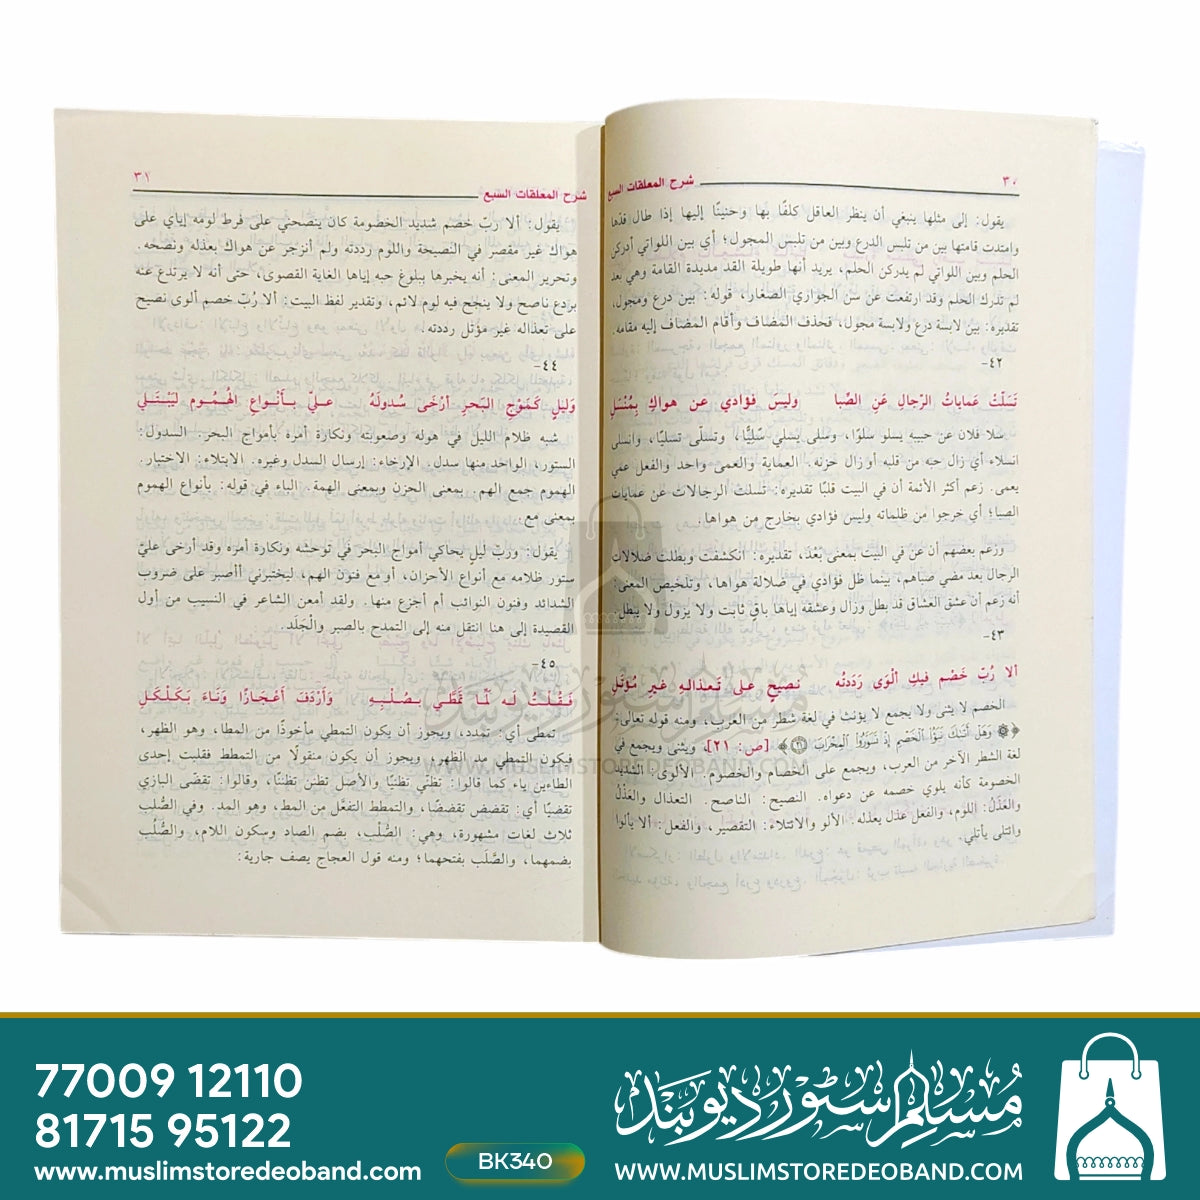 ٣٠ شرح المعلقات السبع
يقول: إلى مثلها ينبغي أن ينظر العاقل كلفًا بها وحنينًا إليها إذا طال قدّها
وامتدت قامتها بين من تلبس الدرع وبين من تلبس المجول؛ أي بين اللواتي أدركن
الحلم وبين اللواتي لم يدركن الحلم، يريد أنها طويلة القد مديدة القامة وهي بعد
لم تدرك الحلم وقد ارتفعت عن سن الجواري الصغار، قوله: بين درع ومجول،
تقديره: بين لابسة درع ولابسة مجول، فحذف المضاف وأقام المضاف إليه مقامه.
٤٢-
تَسَلّتْ عَماياتُ الرّجالِ عَنِ الصِّبا وليسَ فؤادي عن هواكِ بِمُنْسَلِ
سلا فلان عن حبيبه يسلو سلوًا، وسلى يسلي سُلِيًّا، وتسلّى تسليًا، وانسلى
انسلاء أي زال حبه من قلبه أو زال حزنه. العماية والعمى واحد والفعل عمي
يعمى. زعم أكثر الأئمة أن في البيت قلبًا تقديره: تسلت الرجالات عن عمايات
الصبا؛ أي خرجوا من ظلماته وليس فؤادي بخارج من هواها.
وزعم بعضهم أن عن في البيت بمعنى بَعْدَ، تقديره: انكشفت وبطلت ضلالات
الرجال بعد مضي صباهم، بينما ظل فؤادي في ضلالة هواها، وتلخيص المعنى:
أنه زعم أن عشق العشاق قد بطل وزال وعشقه إياها باقٍ ثابت ولا يزول ولا يبطل.
٤٣-
ألا رُبّ خَصْمٍ فيكِ ألْوَى رَدَدتُه نصيحٍ على تَعذالهِ غيرِ مُؤتَلِ
الخصم لا يثنى ولا يجمع لا يؤنث في لغة شطر من العرب، ومنه قوله تعالى:
﴿ وَهَلْ أَتَىٰكَ نَبَؤُا۟ ٱلْخَصْمِ إِذْ تَسَوَّرُوا۟ ٱلْمِحْرَابَ ۝٢١ ﴾ [ص: ٢١]، ويثنى ويجمع في
لغة الشطر الآخر من العرب، ويجمع على الخصام والخصوم. الألوى: الشديد
الخصومة كأنه يلوي خصمه عن دعواه. النصيح: الناصح. التعذال والعَذْلُ
والعَذَلُ: اللوم، والفعل عذل يعذله. الألو والائتلاء: التقصير، والفعل: ألا يألوا
وائتلى يأتلي.
شرح المعلقات السبع ٣١
يقول: ألا ربّ خصم شديد الخصومة كان ينصحني على فرط لومه إياي على
هواك غير مقصر في النصيحة واللوم رددته ولم أنزجر عن هواك بعذله ونصحه.
وتحرير المعنى: أنه يخبرها ببلوغ حبه إياها الغاية القصوى، حتى أنه لا يرتدع عنه
بردع ناصح ولا ينجح فيه لوم لائم، وتقدير لفظ البيت: ألا رُبّ خصم ألوى نصيح
على تعذاله غير مؤتل رددته.
٤٤-
وَليْلٍ كَمَوْجِ البَحرِ أرْخَى سُدولَهُ عليّ بـأنْـواعِ الـهُـمُـومِ لِيَبْـتَـلِي
شبه ظلام الليل في هوله وصعوبته ونكارة أمره بأمواج البحر. السدول:
الستور، الواحد منها سدل. الإرخاء: إرسال السدل وغيره. الابتلاء: الاختبار.
الهموم جمع الهم. بمعنى الحزن وبمعنى الهمة. الباء في قوله: بأنواع الهموم
بمعنى مع.
يقول: وربّ ليلٍ يحاكي أمواج البحر في توحشه ونكارة أمره وقد أرخى عليّ
ستور ظلامه مع أنواع الأحزان، أو مع فنون الهم، ليختبرني أأصبر على ضروب
الشدائد وفنون النوائب أم أجزع منها. ولقد أمعن الشاعر في النسيب من أول
القصيدة إلى هنا انتقل منه إلى التمدح بالصبر والجَلَد.
٤٥-
فَـقُـلْـتُ لَـه لَمّا تَمَطّـى بـصُـلْـبِـهِ وَأرْدَفَ أعْـجَـازًا وَنَـاءَ بَـكَـلْـكَـلِ
تمطى أي: تمدد، ويجوز أن يكون التمطي مأخوذًا من المطا، وهو الظهر،
فيكون التمطي مد الظهر، ويجوز أن يكون منقولًا من التمطط فقلبت إحدى
الطاءين ياء كما قالوا: تظنّى تظنيًا والأصل تظنن تظننًا، وقالوا: تقضّى البازي
تقضيًا أي: تقضض تقضضًا، والتمطط التفعّل من المط، وهو المد. وفي الصُّلب
ثلاث لغات مشهورة، وهي: الصُّلْب، بضم الصاد وسكون اللام، والصُّلُب
بضمهما، والصَّلَب بفتحهما؛ ومنه قول العجاج يصف جارية:
مسلم سٹور دیوبند
WWW.MUSLIMSTOREDEOBAND.COM
77009 12110
81715 95122
www.muslimstoredeoband.com
BK340
مسلم سٹور دیوبند
WWW.MUSLIMSTOREDEOBAND.COM